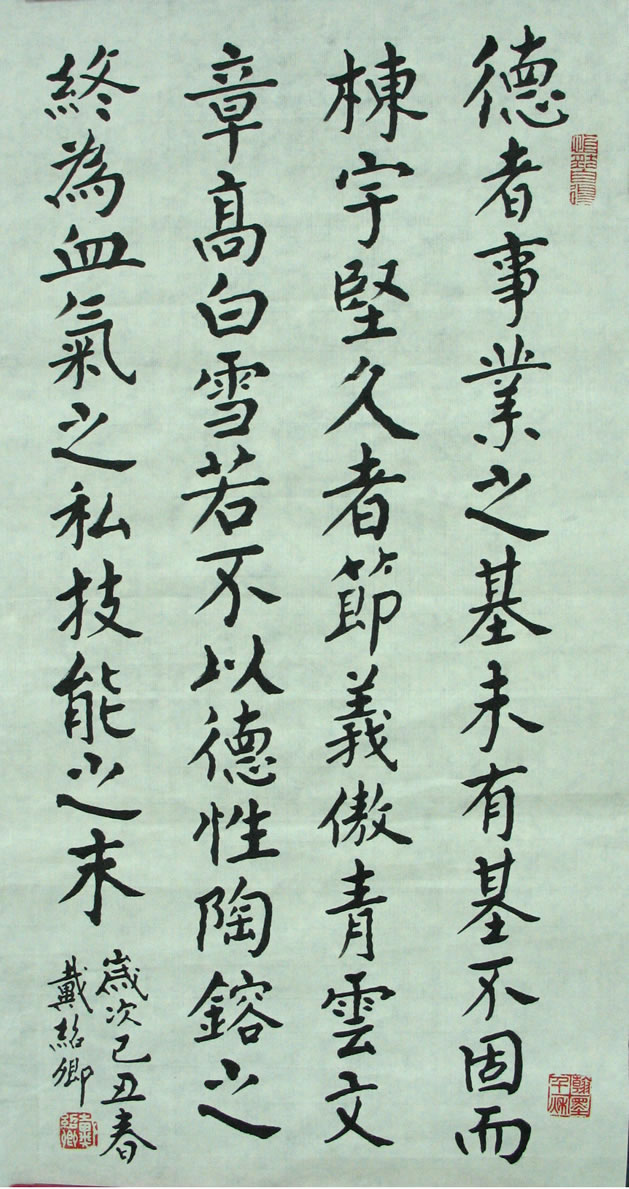 德者事業之基未有基不固而
棟宇堅久者節義傲青雲文
章高白雪若不以德性陶鎔之
終為血氣之私技能之末
歲次己丑春
戴紹卿